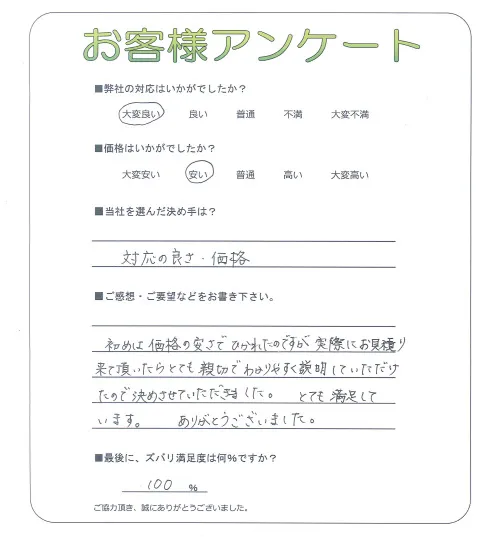 お客様アンケート
■弊社の対応はいかがでしたか?
大変良い 良い 普通 不満 大変不満
■価格はいかがでしたか?
大変安い 安い 普通 高い 大変高い
■当社を選んだ決め手は?
対応の良さ・価格
■ご感想・ご要望などをお書き下さい。
初めは価格の安さでひかれたのですが実際にお見積り
来て頂いたらとても親切でわかりやすく説明していただけ
たので決めさせていただきました。 とても満足して
います。 ありがとうございました。
■最後に、ズバリ満足度は何%ですか?
100 %
ご協力頂き、誠にありがとうございました。